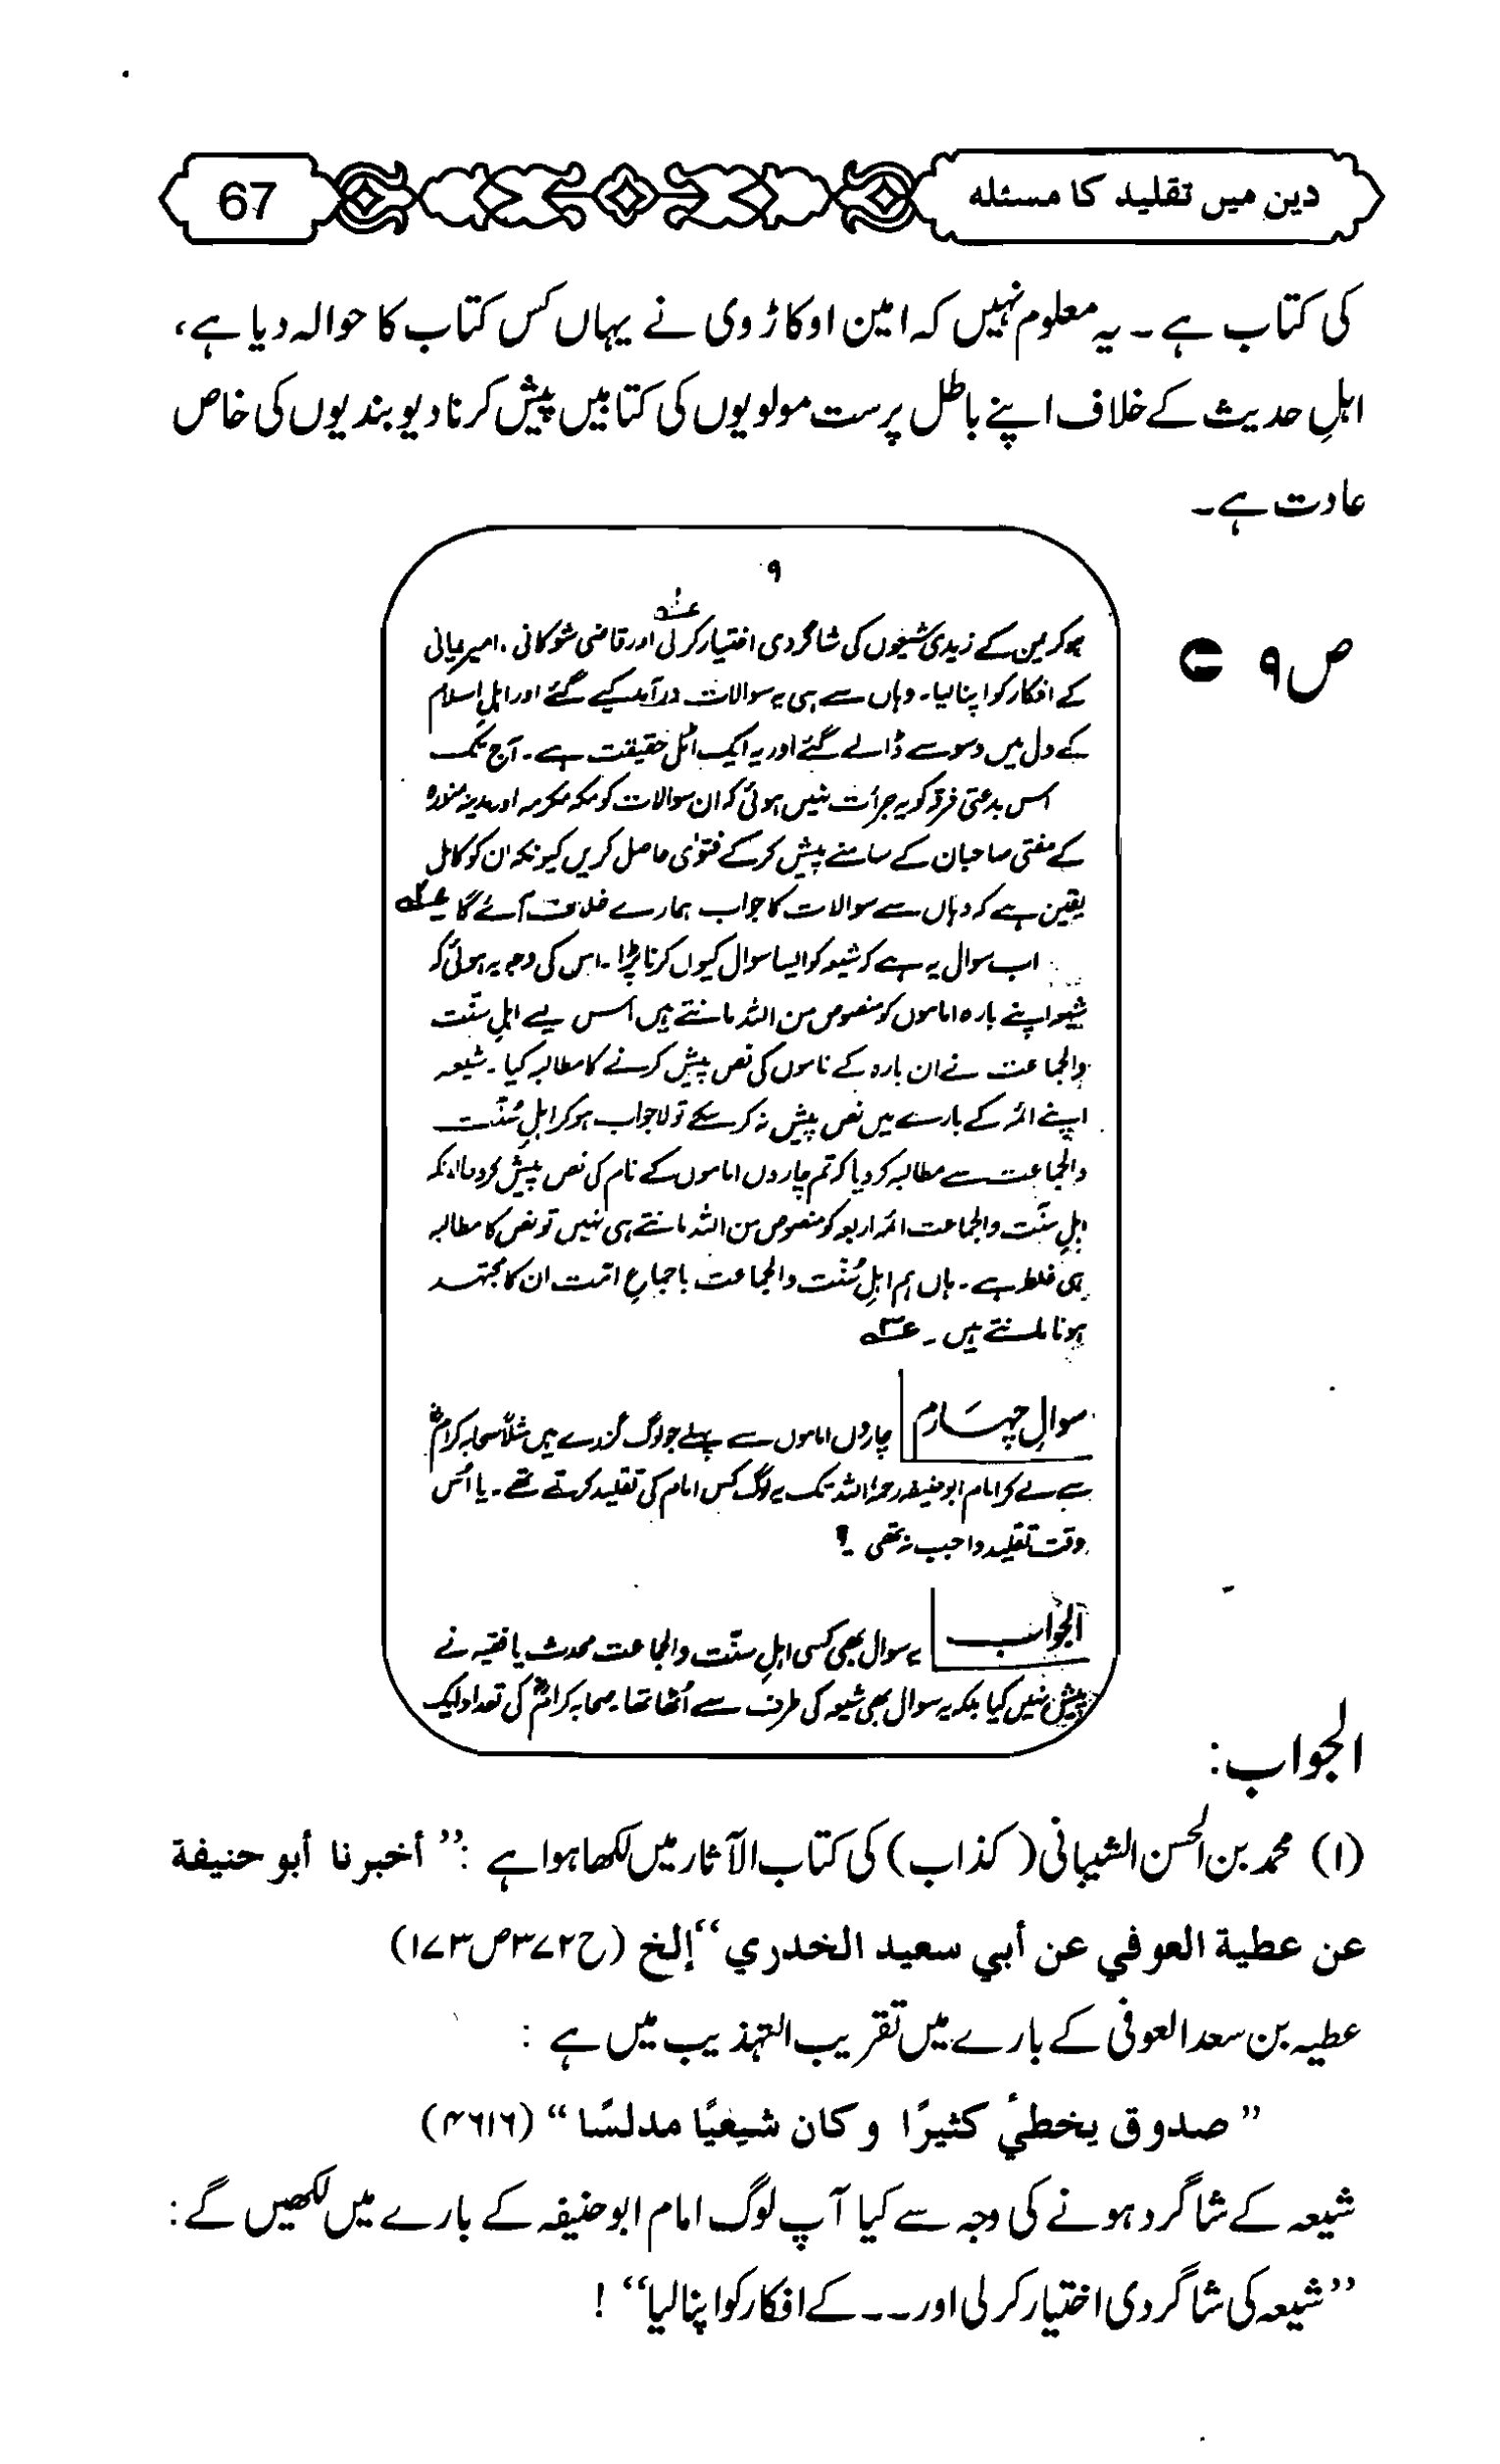 دین میں تقلید کا مسئلہ
67
کی کتاب ہے۔ یہ معلوم نہیں کہ امین اوکاڑوی نے یہاں کس کتاب کا حوالہ دیا ہے،
اہلِ حدیث کے خلاف اپنے باطل پرست مولویوں کی کتابیں پیش کرنا دیوبندیوں کی خاص
عادت ہے۔
ص۹
۹
ہوکر یمن کے زیدی شیعوں کی شاگردی اختیار کرلی عــہ۱ اور قاضی شوکانی، امیر یمانی
کے افکار کو اپنا لیا۔ وہاں سے ہی یہ سوالات درآمد کیے گئے اور اہلِ اسلام
کے دل میں وسوسے ڈالے گئے اور یہ ایک اٹل حقیقت ہے۔ آج تک
اس بدعتی فرقہ کو یہ جرأت نہیں ہوئی کہ ان سوالات کو مکہ مکرمہ اور مدینہ منورہ
کے مفتی صاحبان کے سامنے پیش کرکے فتوٰی حاصل کریں کیونکہ ان کو کامل
یقین ہے کہ وہاں سے سوالات کا جواب ہمارے خلاف آئے گا عــہ۲
اب سوال یہ ہے کہ شیعہ کو ایسا سوال کیوں کرنا پڑا۔ اس کی وجہ یہ ہوئی کہ
شیعہ اپنے بارہ اماموں کو منصوص من اللہ مانتے ہیں اس لیے اہلِ سنّت
والجماعت نے ان بارہ کے ناموں کی نص پیش کرنے کا مطالبہ کیا۔ شیعہ
اپنے ائمہ کے بارے میں نص پیش نہ کر سکے تو لاجواب ہوکر اہلِ سُنّت
والجماعت سے مطالبہ کردیا کہ تم چاروں اماموں کے نام کی نص پیش کرو حالانکہ
اہلِ سنّت والجماعت ائمہ اربعہ کو منصوص من اللہ مانتے ہی نہیں تو نص کا مطالبہ
ہی غلط ہے۔ ہاں ہم اہلِ سُنّت والجماعت باجماعِ امّت ان کا مجتہد
ہونا مانتے ہیں۔ عــہ۳
سوالِ چہارم چاروں اماموں سے پہلے جو لوگ گزرے ہیں مثلاً صحابہ کرامؓ
سے لے کر امام ابوحنیفہ رحمۃ اللہ تک یہ لوگ کس امام کی تقلید کرتے تھے۔ یا اُس
وقت تقلید واجب نہ تھی؟
الجواب یہ سوال بھی کسی اہلِ سنّت والجماعت محدث یا فقیہ نے
پیش نہیں کیا بلکہ یہ سوال بھی شیعہ کی طرف سے اُٹھا تھا۔ صحابہ کرامؓ کی تعداد ایک
الجواب:
(۱) محمد بن الحسن الشیبانی (کذاب) کی کتاب الآثار میں لکھا ہوا ہے: ’’أخبرنا أبو حنیفة
عن عطیة العوفي عن أبي سعید الخدري‘‘ إلخ (ح۳۷۲ ص۱۷۳)
عطیہ بن سعد العوفی کے بارے میں تقریب التہذیب میں ہے:
’’صدوق یخطئ کثیرًا و کان شیعیًا مدلسًا‘‘ (۴۶۱۶)
شیعہ کے شاگرد ہونے کی وجہ سے کیا آپ لوگ امام ابوحنیفہ کے بارے میں لکھیں گے:
’’شیعہ کی شاگردی اختیار کر لی اور۔۔۔ کے افکار کو اپنا لیا‘‘!